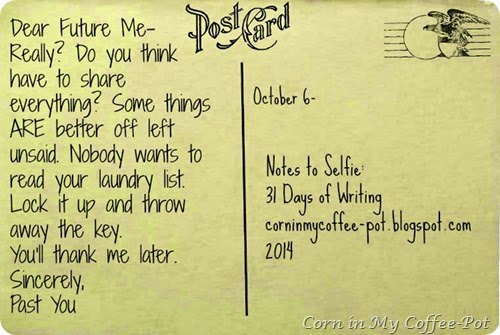 Post Card
Dear Future Me-
Really? Do you think
have to share
everything? Some things
ARE better off left
unsaid. Nobody wants to
read your laundry list.
Lock it up and throw
away the key.
You'll thank me later.
Sincerely,
Past You
October 6-
Notes to Selfie:
31 Days of Writing
corninmycoffee-pot.blogspot.com
2014
Corn in My Coffee-Pot